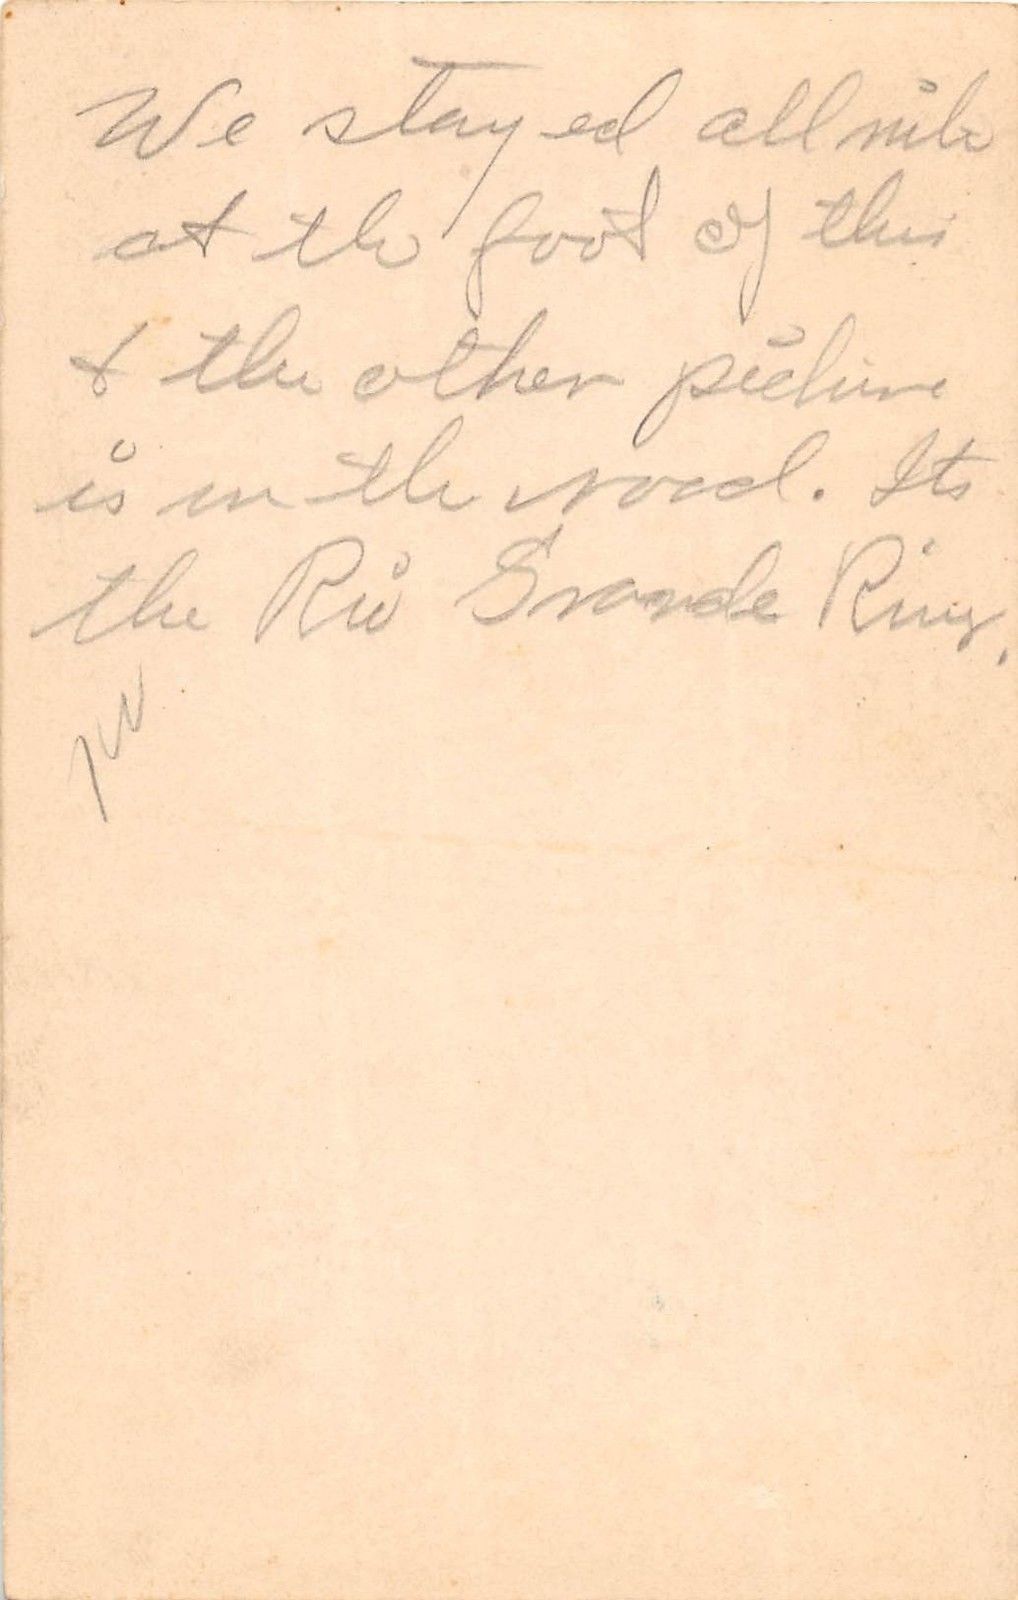 We stayed all nite
at the foot of this
& the other picture
is in the road. Its
the Rio Grande River.